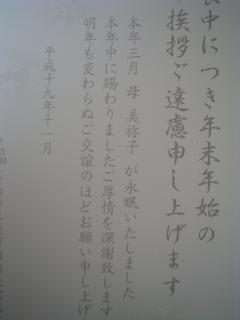 喪中につき年末年始の
挨拶ご遠慮申し上げます
本年三月 母 美祢子 が永眠いたしました
本年中に賜わりましたご厚情を深謝致します
明年も変わらぬご交誼のほどお願い申し上げ
平成十九年十一月